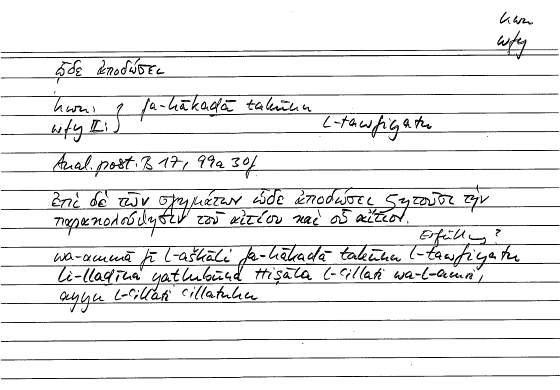 kwn
wfy
ὧδε ἀποδώσει
kwn: } fa-hākaḏā takūnu
wfy II: } l-tawfiyatu
Anal. post. B 17, 99a 30f.
ἐπὶ δὲ τῶν σχημάτων ὧδε ἀποδώσει ζητοῦσι τὴν
παρακολούθησιν τοῦ αἰτίου καὶ οὗ αἴτιον.
Erfüllung?
wa-ammā fī l-aškāli fa-hākaḏā takūnu l-tawfiyatu
li-llaḏīna yaṭlubūna ttiṣāla l-ʿillati wa-l-amri,
ayyu l-ʿillati ʿillatuhu